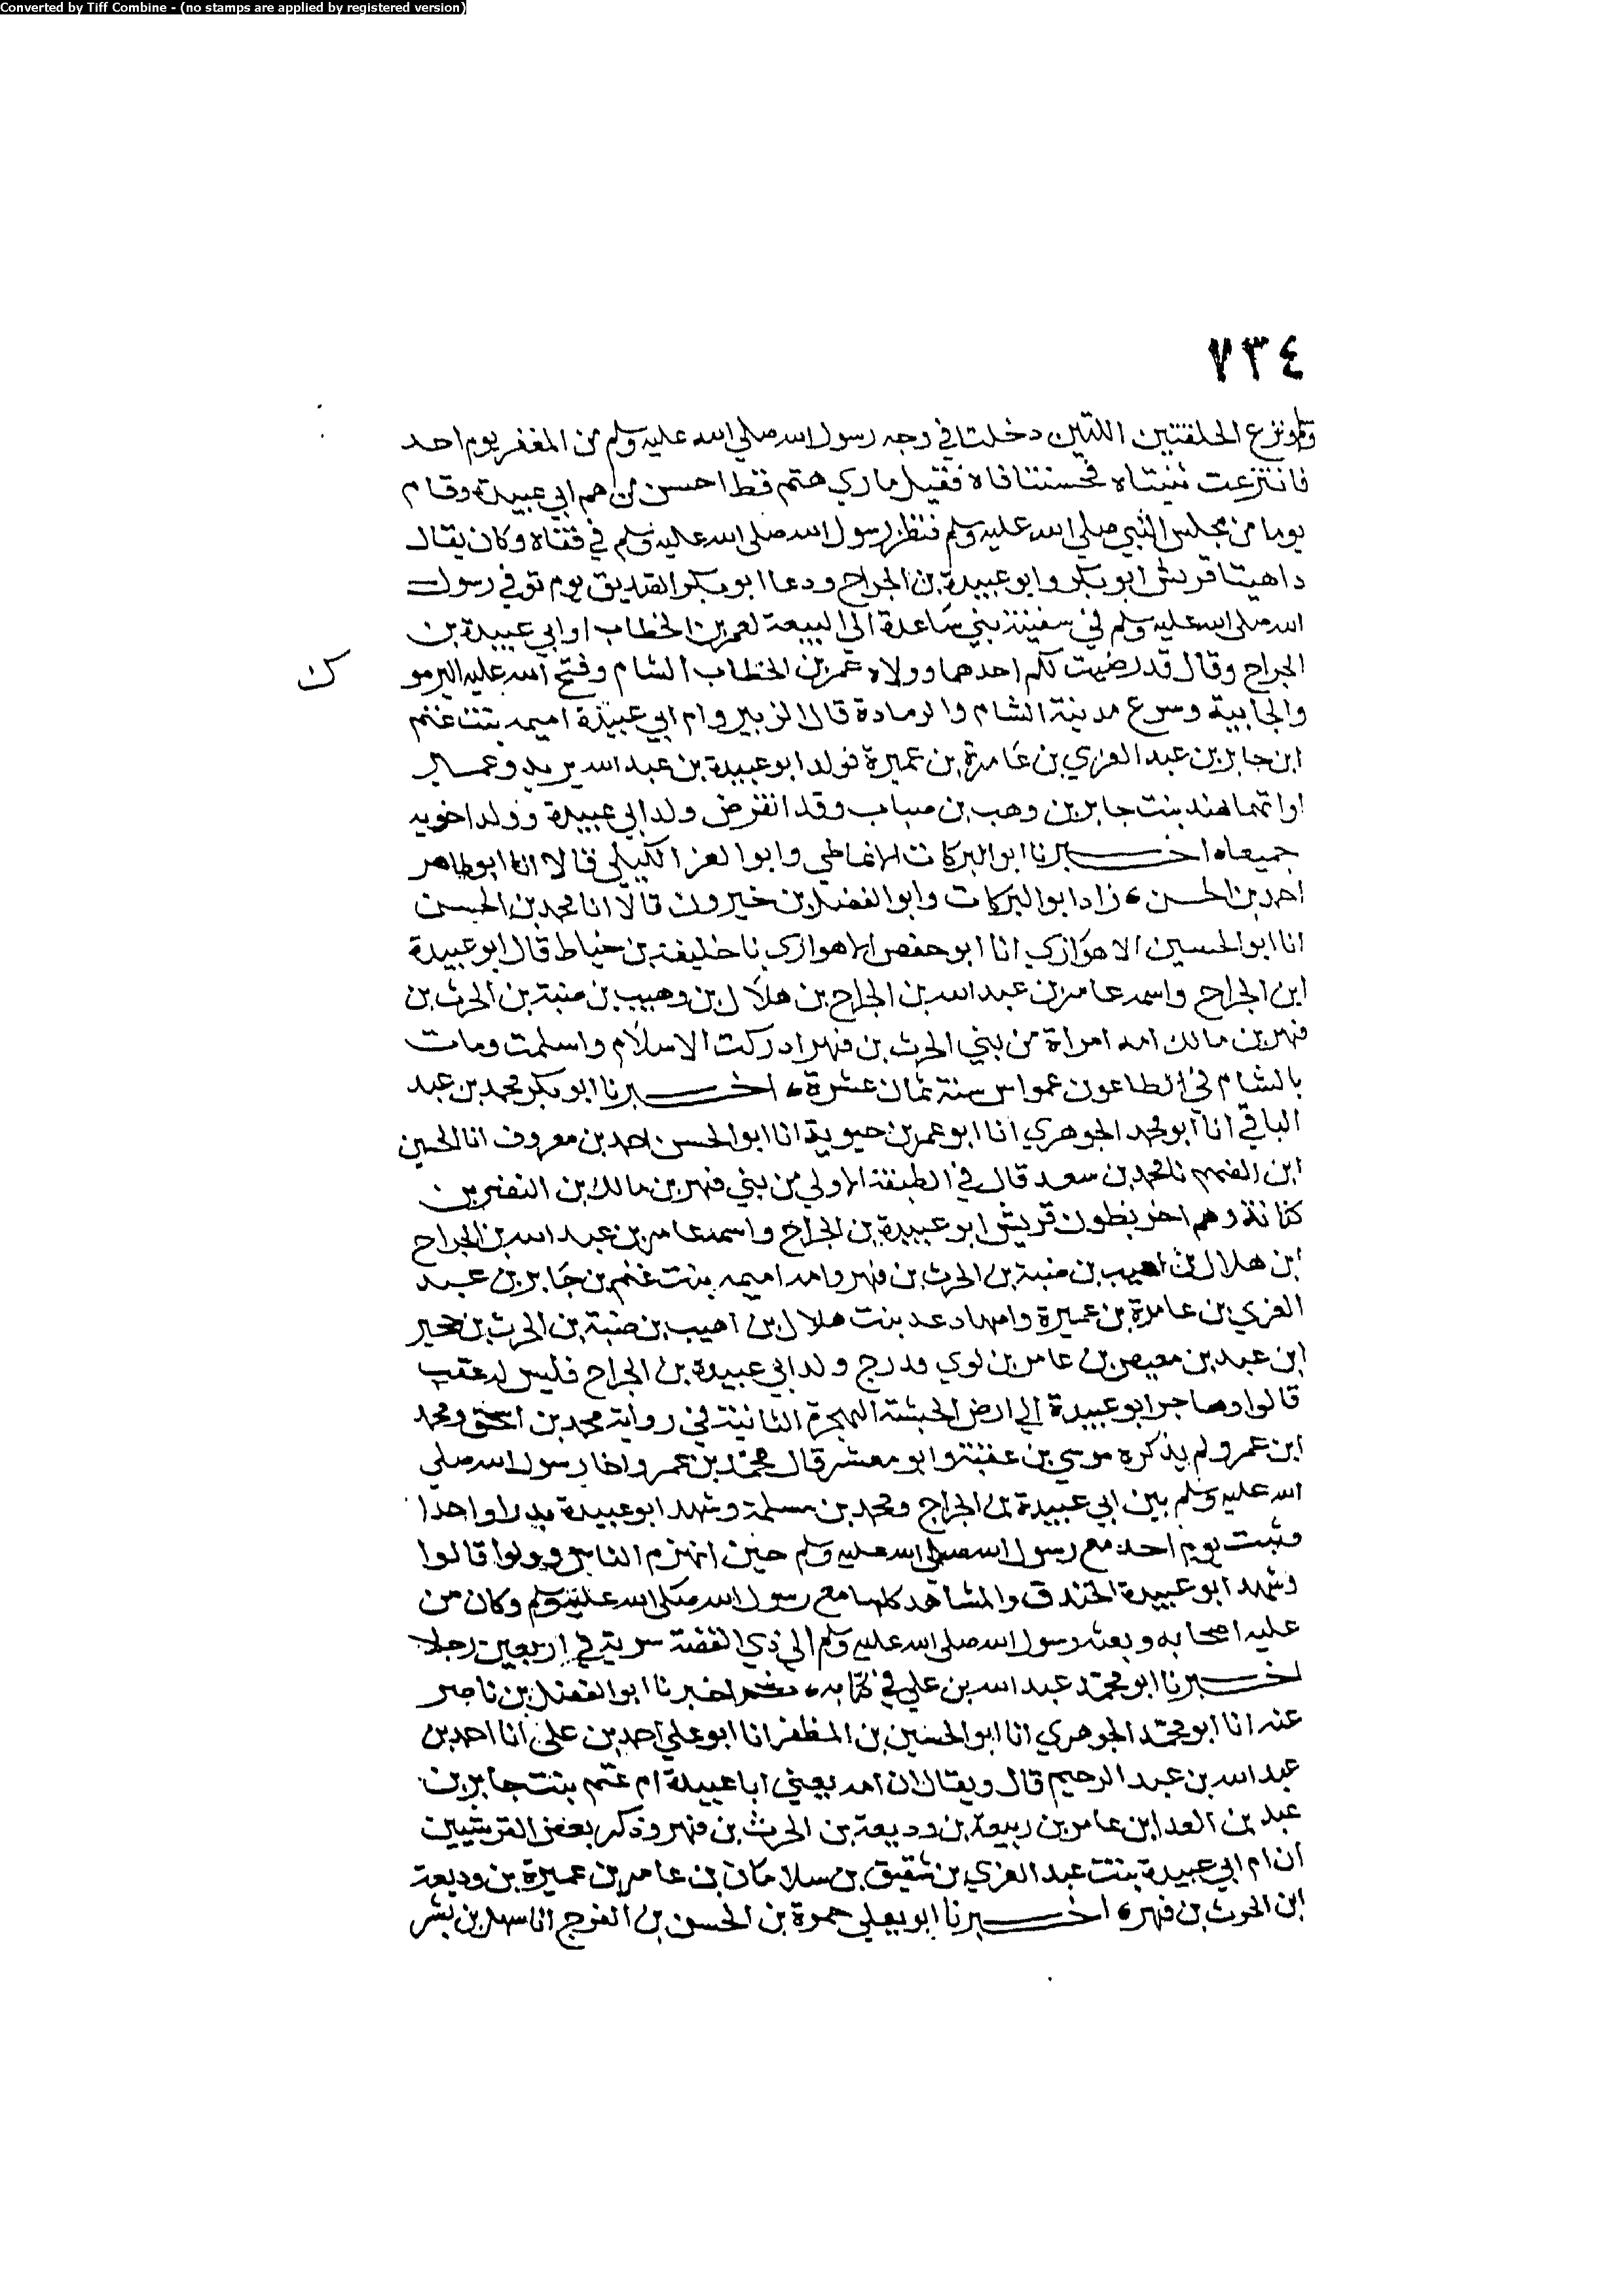 Converted by Tiff Combine - (no stamps are applied by registered version)
٧٣٤
ونزع الحلقتين اللتين دخلتا في وجه رسول الله صلي الله عليه وسلم من المغفر يوم احد
فانتزعت ثنيتاه فحسنتا فاه فقيل ما ري هتم قط احسن من هم ابي عبيدة وقام
يوما من مجلس النبي صلي الله عليه وسلم فنظر رسول الله صلى الله عليه وسلم في قفاه وكان يقال
داهيتا قريش ابو بكر وابو عبيدة بن الجراح ودعا ابو بكر الصديق يوم توفي رسول
الله صلى الله عليه وسلم في سقيفة بني ساعدة الي البيعة لعمر بن الخطاب او ابي عبيدة بن
الجراح وقال قد رضيت لكم احدهما وولاه عمر بن الخطاب الشام وفتح الله عليه اليرمو
ك
والجابية وسرع مدينة الشام والرمادة قال الزبير وام ابي عبيدة اميمه بنت غنم
ابن جابر بن عبد العزي بن عامرة بن عميرة فولد ابو عبيدة بن عبد الله يزيد وعمير
وامهما هند بنت جابر بن وهب بن ضباب وقد انقرض ولد ابي عبيدة وولد اخويه
جميعا ه اخبرنا ابو البركات الانماطي وابو العز الكيلي قالا انا ابو طاهر
احمد بن الحسن ه زاد ابو البركات وابو الفضل بن خيرون قالا انا محمد بن الحسن
انا ابو الحسين الاهوازي انا ابو حفص الاهوازي نا خليفة بن خياط قال ابو عبيدة
ابن الجراح واسمه عامر بن عبد الله بن الجراح بن هلال بن وهيب بن منبة بن الحرث بن
فهر بن مالك امه امراة من بني الحرث بن فهر ادركت الاسلام واسلمت ومات
بالشام في الطاعون عمواس سنة ثمان عشرة ه اخبرنا ابو بكر محمد بن عبد
الباقي انا ابو محمد الجوهري انا ابو عمر بن حيوية انا ابو الحسن احمد بن معروف انا الحسين
ابن الفهم نا محمد بن سعد قال في الطبقة الاولي من بني فهر بن مالك بن النضر بن
كنانة وهم اخر بطون قريش ابو عبيدة بن الجراح واسمه عامر بن عبد الله بن الجراح
ابن هلال بن اهيب بن ضبة بن الحرث بن فهر وامه اميمه بنت غنم بن جابر بن عبد
العزي بن عامرة بن عميرة وامها دعد بنت هلال بن اهيب بن ضبة بن الحرث بن حجير
ابن عبد بن معيص بن عامر بن لوي ودرج ولد ابي عبيدة بن الجراح فليس له عقب
قالوا وهاجر ابو عبيدة الي ارض الحبشة الهجرة الثانية في رواية محمد بن اسحق ومحمد
ابن عمر ولم يذكره موسي بن عقبة وابو معشر قال محمد بن عمر واخا رسول الله صلي
الله عليه وسلم بين ابي عبيدة بن الجراح ومحمد بن مسلمة وشهد ابو عبيدة بدرا واحدا
وثبت يوم احد مع رسول الله صلى الله عليه وسلم حين انهزم الناس وولوا قالوا
وشهد ابو عبيدة الخندق والمشاهد كلها مع رسول الله صلى الله عليه وسلم وكان من
عليه اصحابه وبعثه رسول الله صلى الله عليه وسلم الي ذي القصة سرية في اربعين رجلا
اخبرنا ابو محمد عبد الله بن علي في كتابه ه ثم اخبرنا ابو الفضل بن ناصر
عنه انا ابو محمد الجوهري انا ابو الحسين بن المظفر انا ابو علي احمد بن علي انا احمد بن
عبد الله بن عبد الرحيم قال ويقال ان امه يعني ابا عبيدة ام غنم بنت جابر بن
عبد بن العدا بن عامر بن ربيعة بن وديعة بن الحرث بن فهر وذكر بعض القرشيين
ان ام ابي عبيدة بنت عبد العزي بن شقيق بن سلامان بن عامر بن عميرة بن وديعة
ابن الحرث بن فهر ه اخبرنا ابو يعلي حمزة بن الحسن بن المفرج انا سهل بن بشر